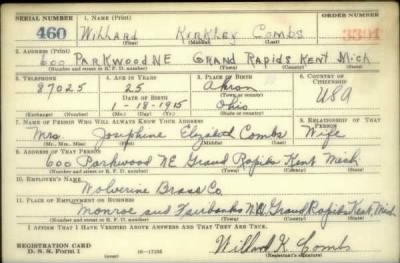 SERIAL NUMBER 1. NAME (Print) ORDER NUMBER
460 Willard Kirkley Combs 3394
(First) (Middle) (Last)
2. ADDRESS (Print)
600 PARKWOOD NE GRAND RAPIDS KENT MICH
(Number and street or R. F. D. number) (Town) (County) (State)
3. TELEPHONE 4. AGE IN YEARS 5. PLACE OF BIRTH 6. COUNTRY OF CITIZENSHIP
87025 25 Akron USA
DATE OF BIRTH (Town or county)
1-18-1915 Ohio
(Exchange) (Number) (Mo.) (Day) (Yr.) (State or country)
7. NAME OF PERSON WHO WILL ALWAYS KNOW YOUR ADDRESS 8. RELATIONSHIP OF THAT PERSON
Mrs. Josephine Elizabeth Combs Wife
(Mr., Mrs., Miss) (First) (Middle) (Last)
9. ADDRESS OF THAT PERSON
600 Parkwood NE Grand Rapids Kent Mich
(Number and street or R. F. D. number) (Town) (County) (State)
10. EMPLOYER'S NAME
Wolverine Brass Co
11. PLACE OF EMPLOYMENT OR BUSINESS
Monroe and Fairbanks N.W. Grand Rapids Kent, Mich
(Number and street or R. F. D. number) (Town) (County) (State)
I AFFIRM THAT I HAVE VERIFIED ABOVE ANSWERS AND THAT THEY ARE TRUE.
REGISTRATION CARD
D. S. S. Form 1 Willard K. Combs
(Registrant's signature)